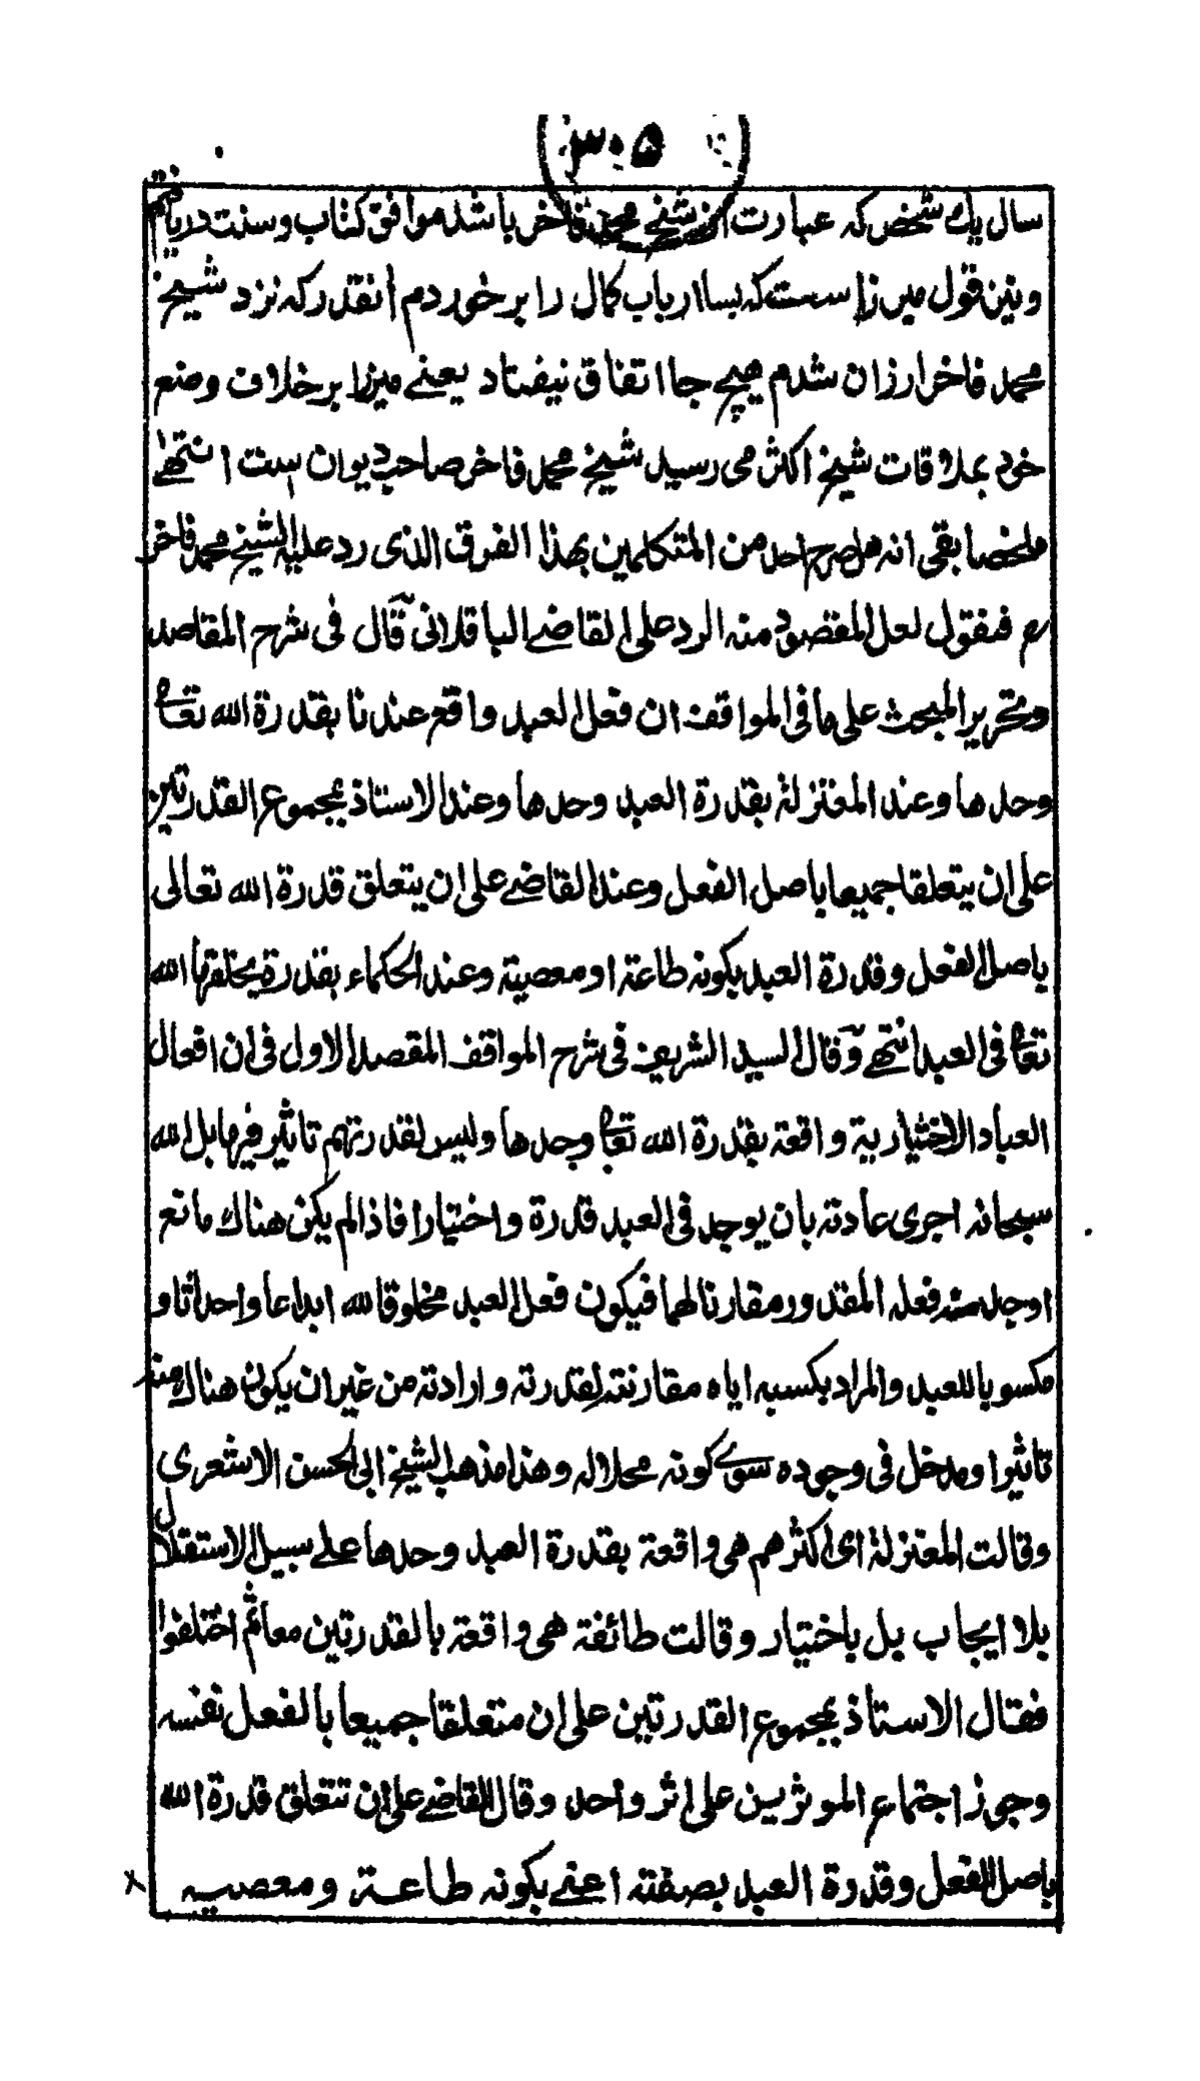 ۳۰۵
سال یک شخص که عبارت از شیخ محمد فاخر باشد موافق کتاب و سنت دریافتم
ونیز قول میرزا ست که بسا ارباب کمال را برخوردم انقدر که نزد شیخ
محمد فاخر ارزان شدم هیچ جا اتفاق نیفتاد یعنے میرزا برخلاف وضع
خود بملاقات شیخ اکثر می رسید شیخ محمد فاخر صاحب دیوان ست انتهے
ملخصا بقی انه هل صرح احد من المتکلمین بهذا الفرق الذی رد علیه الشیخ محمد فاخر
رح فنقول لعل المقصود منه الرد علی القاضے الباقلانی قال فی شرح المقاصد
وتحریر المبحث علی ما فی المواقف ان فعل العبد واقع عندنا بقدرة الله تعالی
وحدها وعند المعتزلة بقدرة العبد وحدها وعند الاستاذ بمجموع القدرتین
علی ان یتعلقا جمیعا باصل الفعل وعند القاضے علی ان یتعلق قدرة الله تعالی
باصل الفعل وقدرة العبد بکونه طاعة او معصیة وعند الحکماء بقدرة یخلقها الله
تعالی فی العبد انتهے وقال السید الشریف فی شرح المواقف المقصد الاول فی ان افعال
العباد الاختیاریة واقعة بقدرة الله تعالی وحدها ولیس لقدرتهم تاثیر فیها بل الله
سبحانه اجری عادته بان یوجد فی العبد قدرة واختیارا فاذا لم یکن هناک مانع
اوجد فعله المقدور مقارنا لهما فیکون فعل العبد مخلوقا لله ابداعا واحداثا و
مکسوبا للعبد والمراد بکسبه ایاه مقارنته لقدرته وارادته من غیر ان یکون هناک منه
تاثیر او مدخل فی وجوده سوے کونه محلا له وهذا مذهب الشیخ ابی الحسن الاشعری
وقالت المعتزلة ای اکثرهم هی واقعة بقدرة العبد وحدها علے سبیل الاستقلال
بلا ایجاب بل باختیار وقالت طائفة هی واقعة بالقدرتین معا ثم اختلفوا
فقال الاستاذ بمجموع القدرتین علی ان متعلقا جمیعا بالفعل نفسه
وجوز اجتماع الموثرین علی اثر واحد وقال القاضے علی ان تتعلق قدرة الله
باصل الفعل وقدرة العبد بصفته اعنے بکونه طاعة ومعصیه